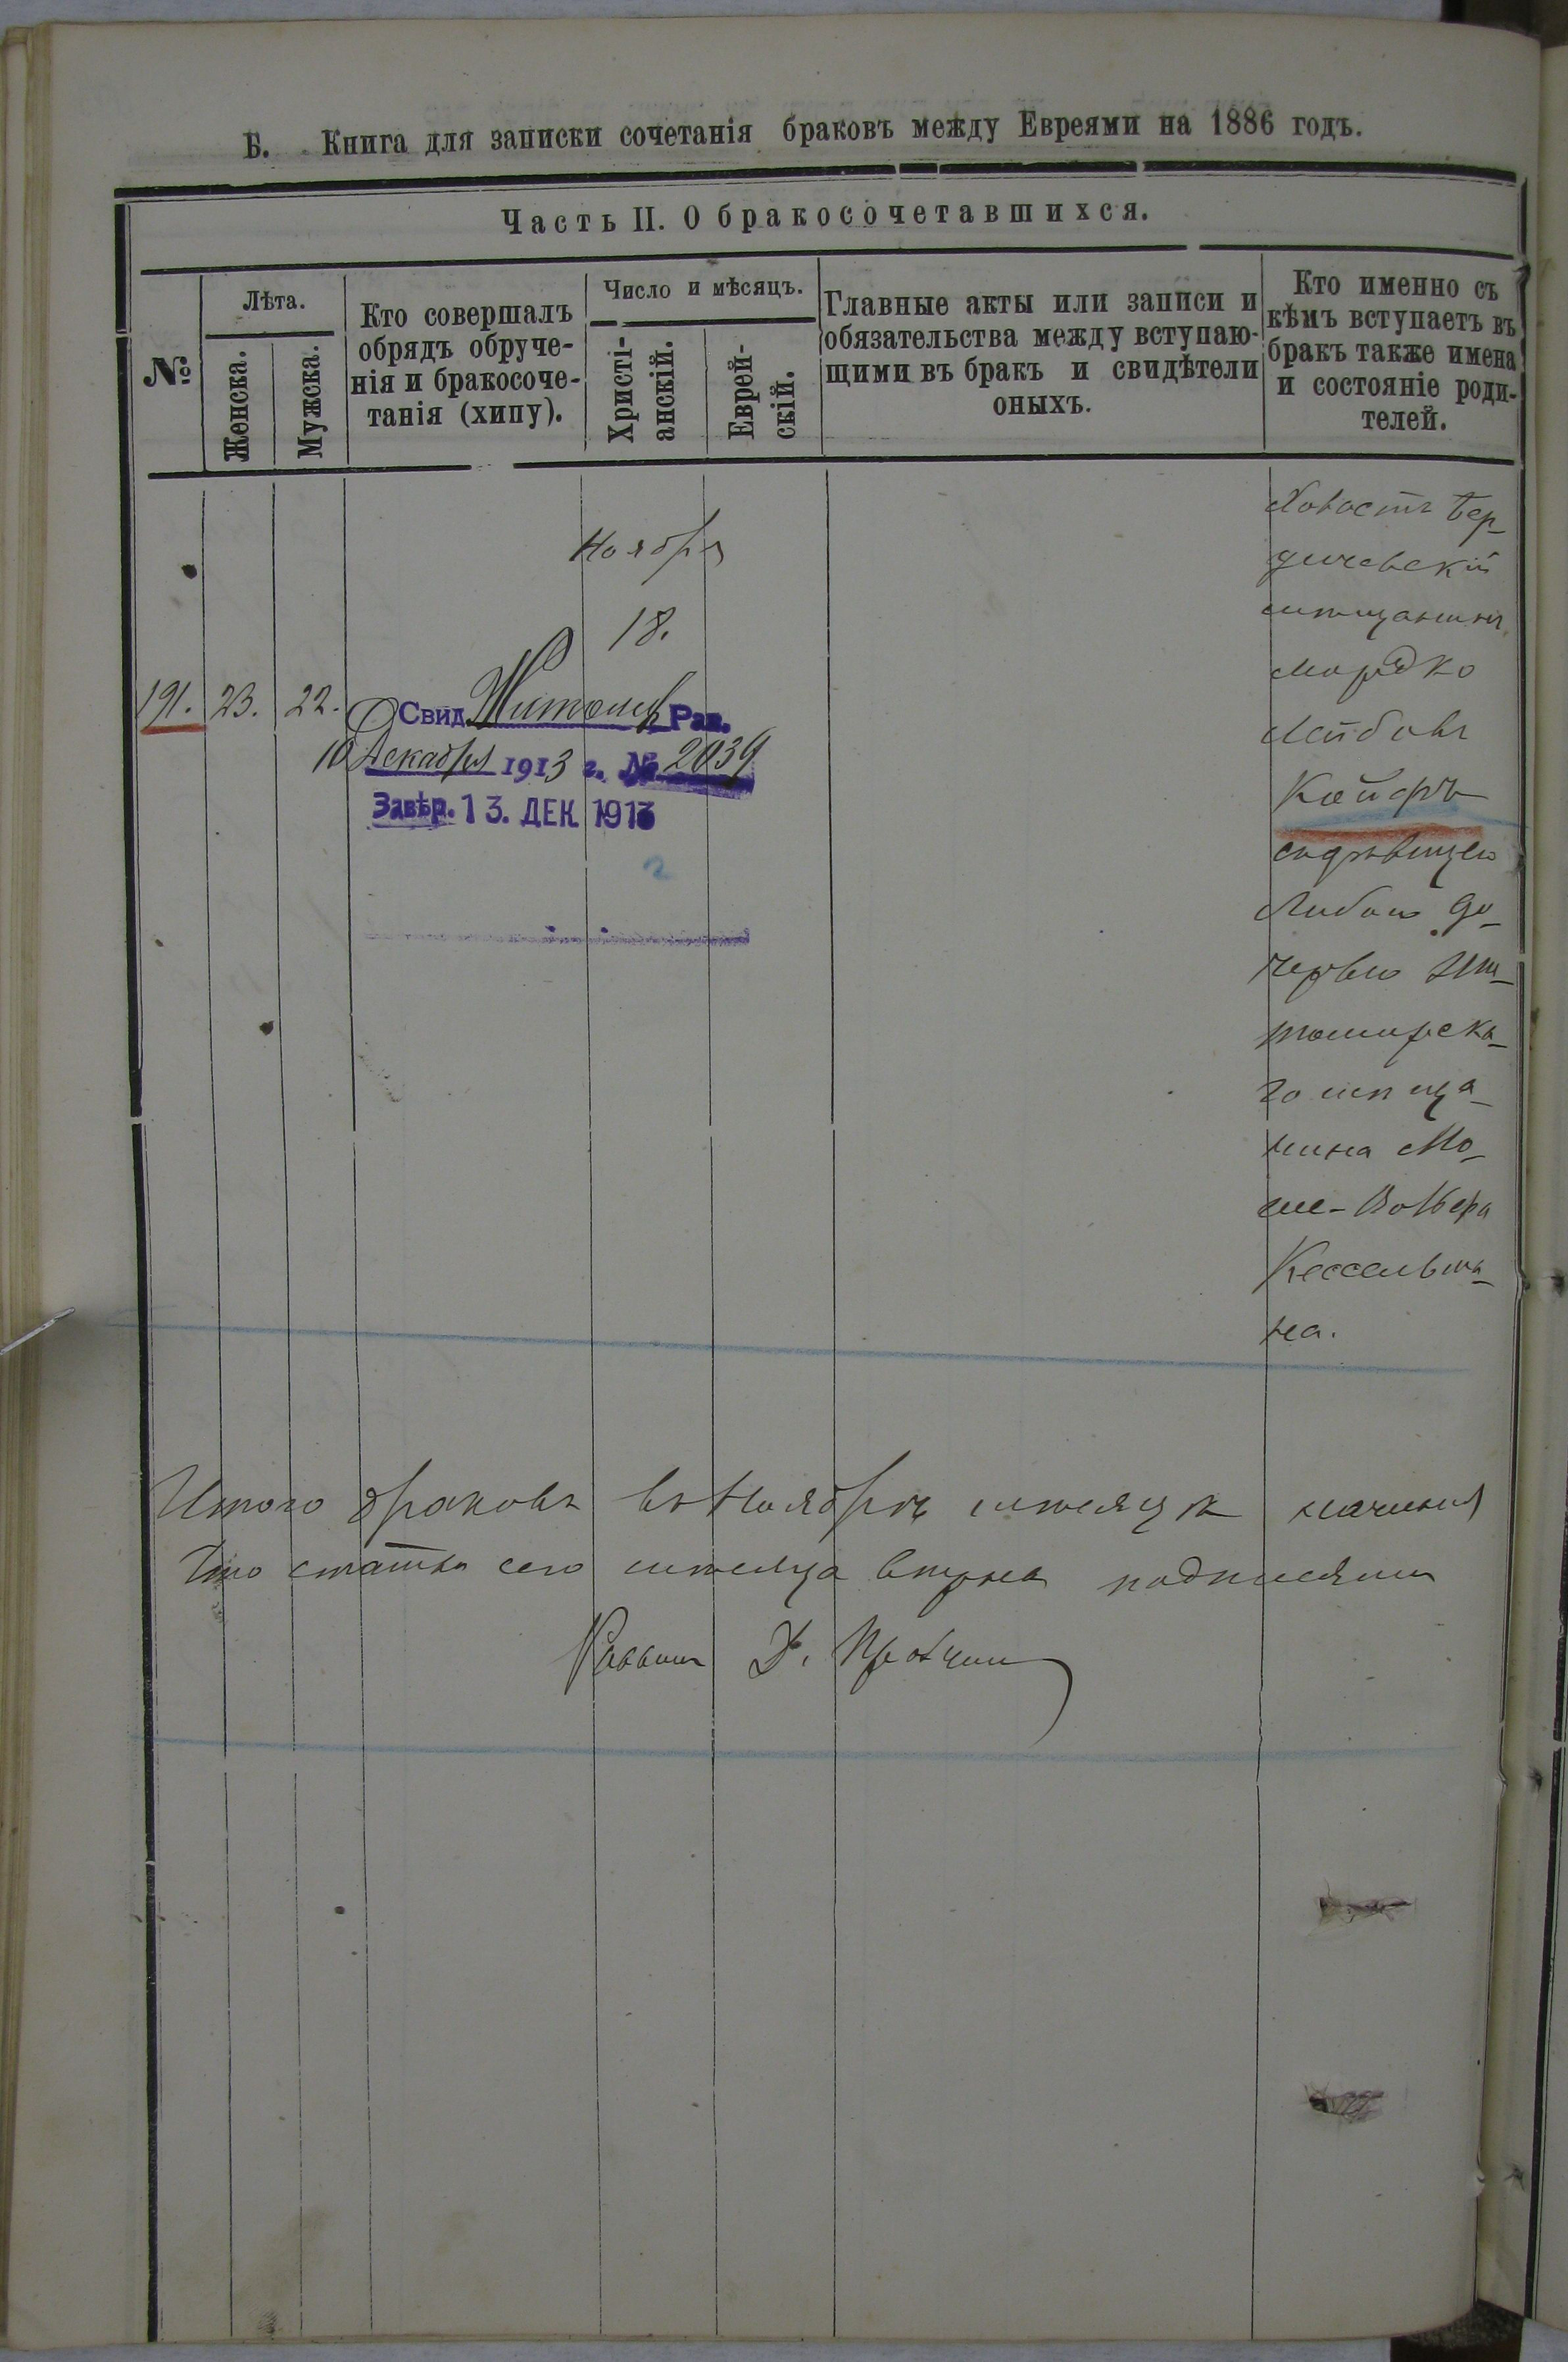 Б. Книга для записки сочетанія браковъ между Евреями на 1886 годъ.
Часть II. О бракосочетавшихся.
№
Лѣта.
Женска.
Мужска.
Кто совершалъ
обрядъ обруче-
нія и бракосоче-
танія (хипу).
Число и мѣсяцъ.
Христі-
анскій.
Еврей-
скій.
Главные акты или записи и
обязательства между вступаю-
щими въ бракъ и свидѣтели
оныхъ.
Кто именно съ
кѣмъ вступаетъ въ
бракъ также имена
и состояніе роди-
телей.
Ноября
18.
191. 23. 22.
Свид. Житомир Рав.
10 Декабря 1913 г. № 2039
Завѣр. 13. ДЕК 1913
Холостъ Бер-
дичевскій
мѣщанинъ
Мордко
Лейбовъ
съ дѣвицею
до-
черью Жи-
томирска-
го мѣща-
нина Мо-
ше-Вольфа
Кессельма-
на.
Итого браковъ въ Ноябрѣ мѣсяцѣ
что статьи сего мѣсяца вѣрна подписями
Раввинъ